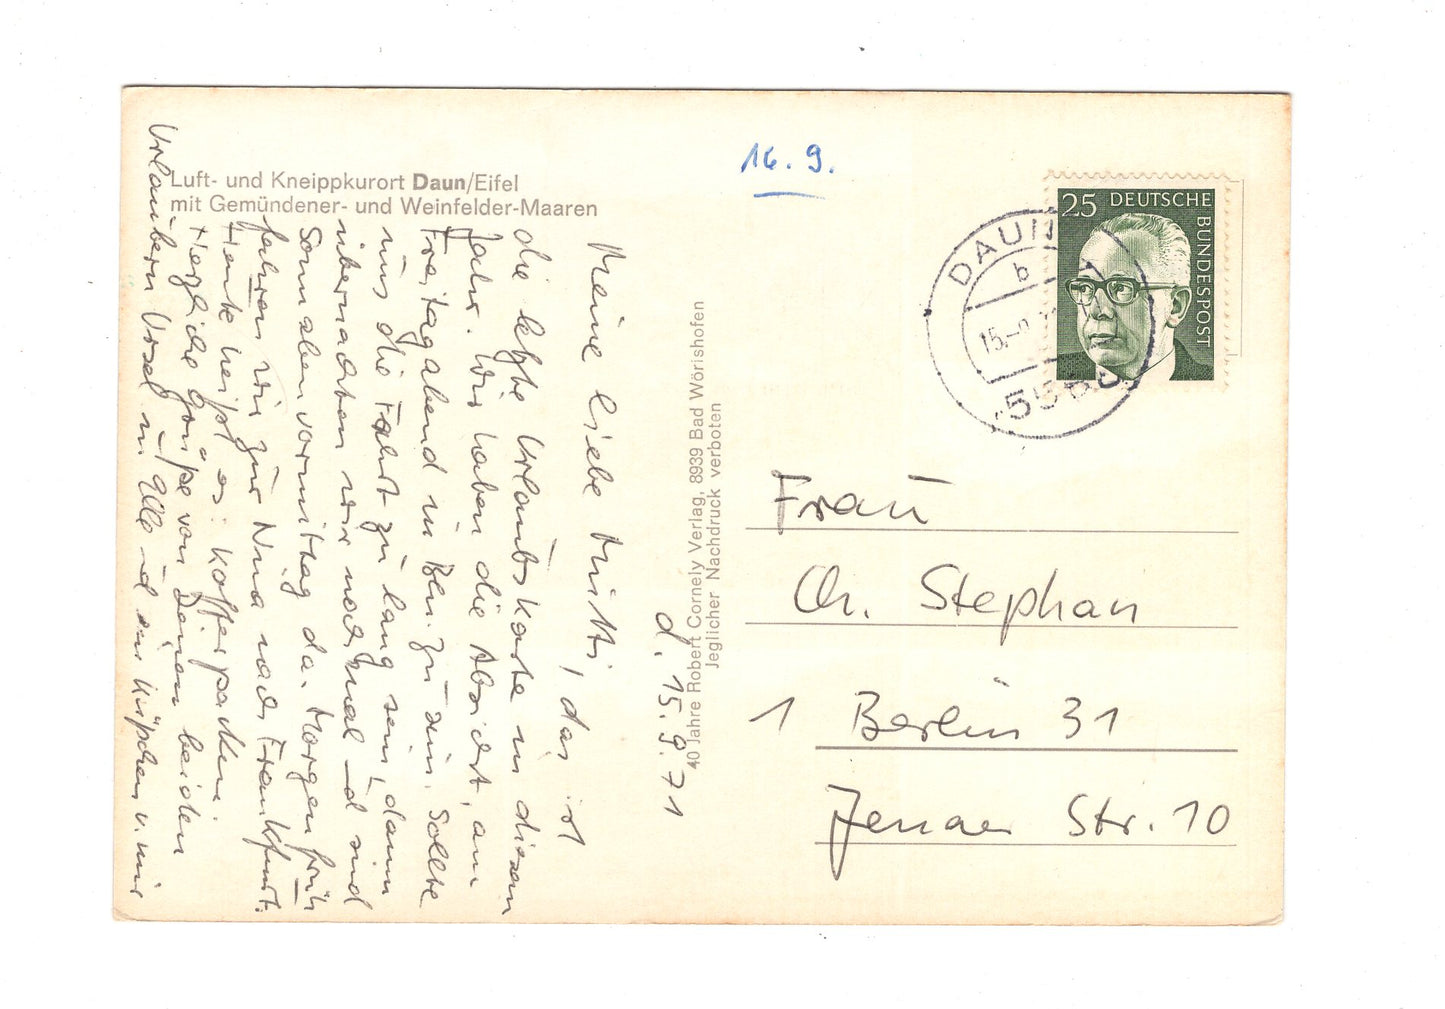 Luft- und Kneippkurort Daun/Eifel
mit Gemündener- und Weinfelder-Maaren
d. 15.9.71
Meine liebe Mutti, das ist
die letzte Urlaubskarte in diesem
Jahr. Wir haben die Absicht, am
Freitagabend in Bln. zu sein. Sollte
uns die Fahrt zu lang sein, dann
übernachten wir noch mal und sind
Sonnabendvormittag da. Morgen früh
fahren wir zur Nina nach Frankfurt.
Heute heißt es: Kofferpacken.
Herzliche Grüße von Deinen beiden
Urlaubern Ursel u.
40 Jahre Robert Cornely Verlag, 8939 Bad Wörishofen
Jeglicher Nachdruck verboten
16. 9.
25 DEUTSCHE
BUNDESPOST
DAUN
b
15.
Frau
Ch. Stephan
1 Berlin 31
Jenaer Str. 10